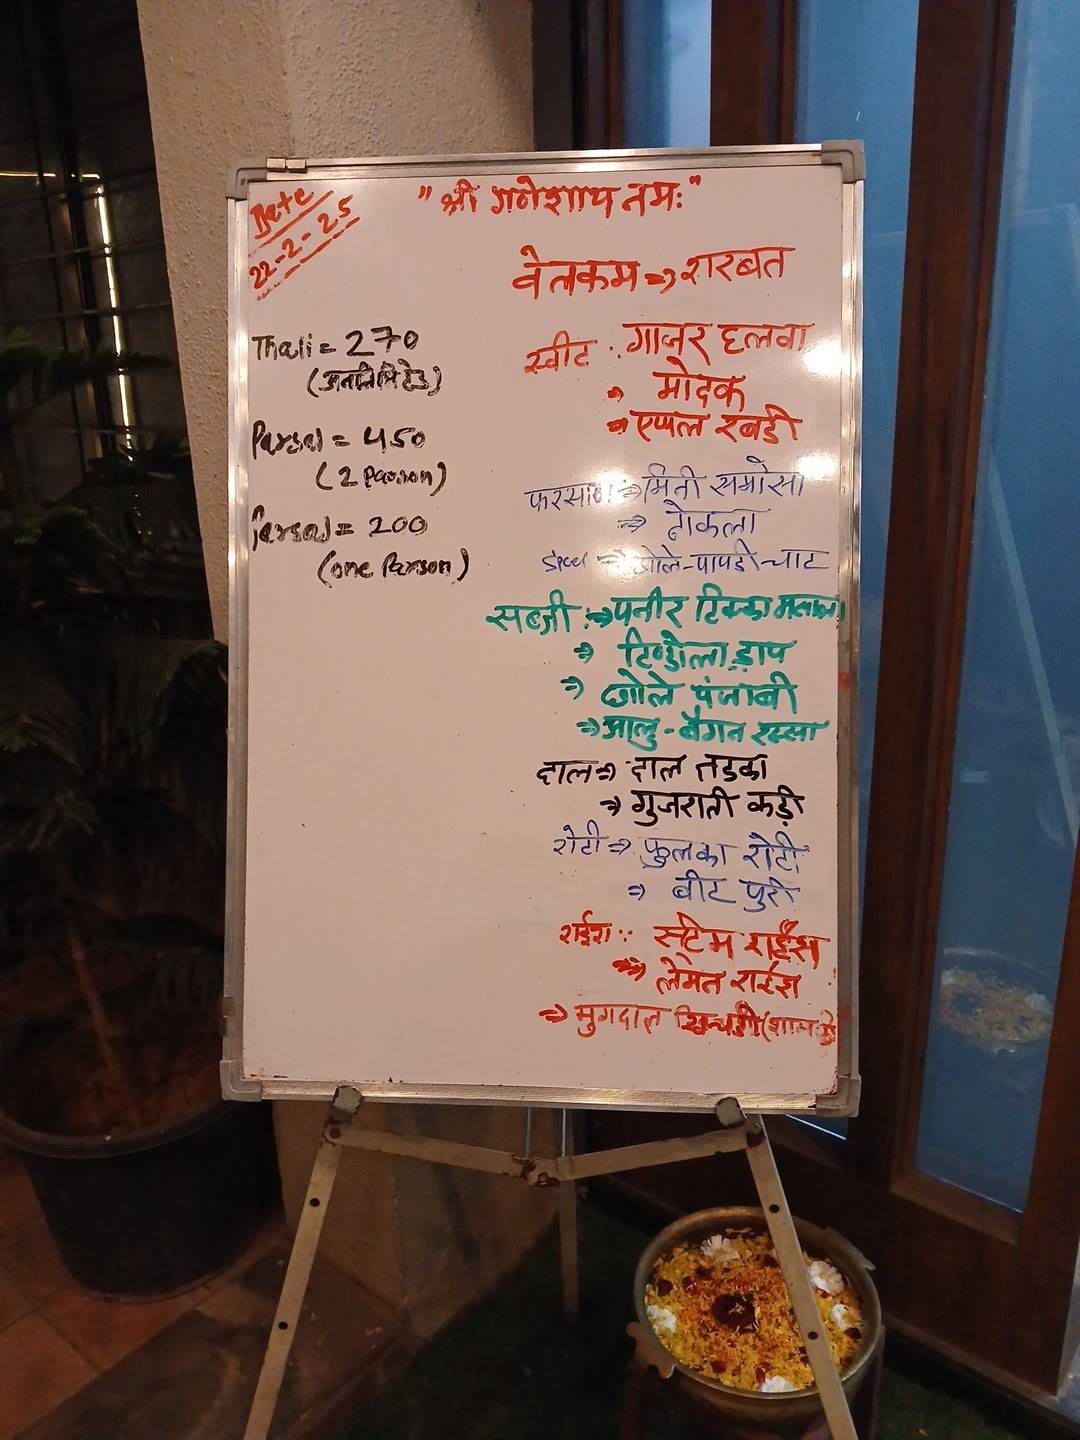 Date
22-2-25
"श्री गणेशाय नमः"
वेलकम ⇒ शरबत
Thali = 270
(अनलिमिटेड)
Parsal = 450
(2 Person)
Parsal = 200
(one Person)
स्वीट : गाजर हलवा
⇒ मोदक
⇒ एप्पल रबडी
फरसाण ⇒ मिनी समोसा
⇒ ढोकला
⇒ छोले-पापडी-चाट
सब्जी :⇒ पनीर टिक्का मसाला
⇒ टिण्डोला ड्राय
⇒ छोले पंजाबी
⇒ आलु-बैगन रस्सा
दाल ⇒ दाल तडका
⇒ गुजराती कड़ी
रोटी ⇒ फुलका रोटी
⇒ बीट पुरी
राईस : स्टीम राईस
⇒ लेमन राईस
⇒ मुगदाल खिचडी (शाम